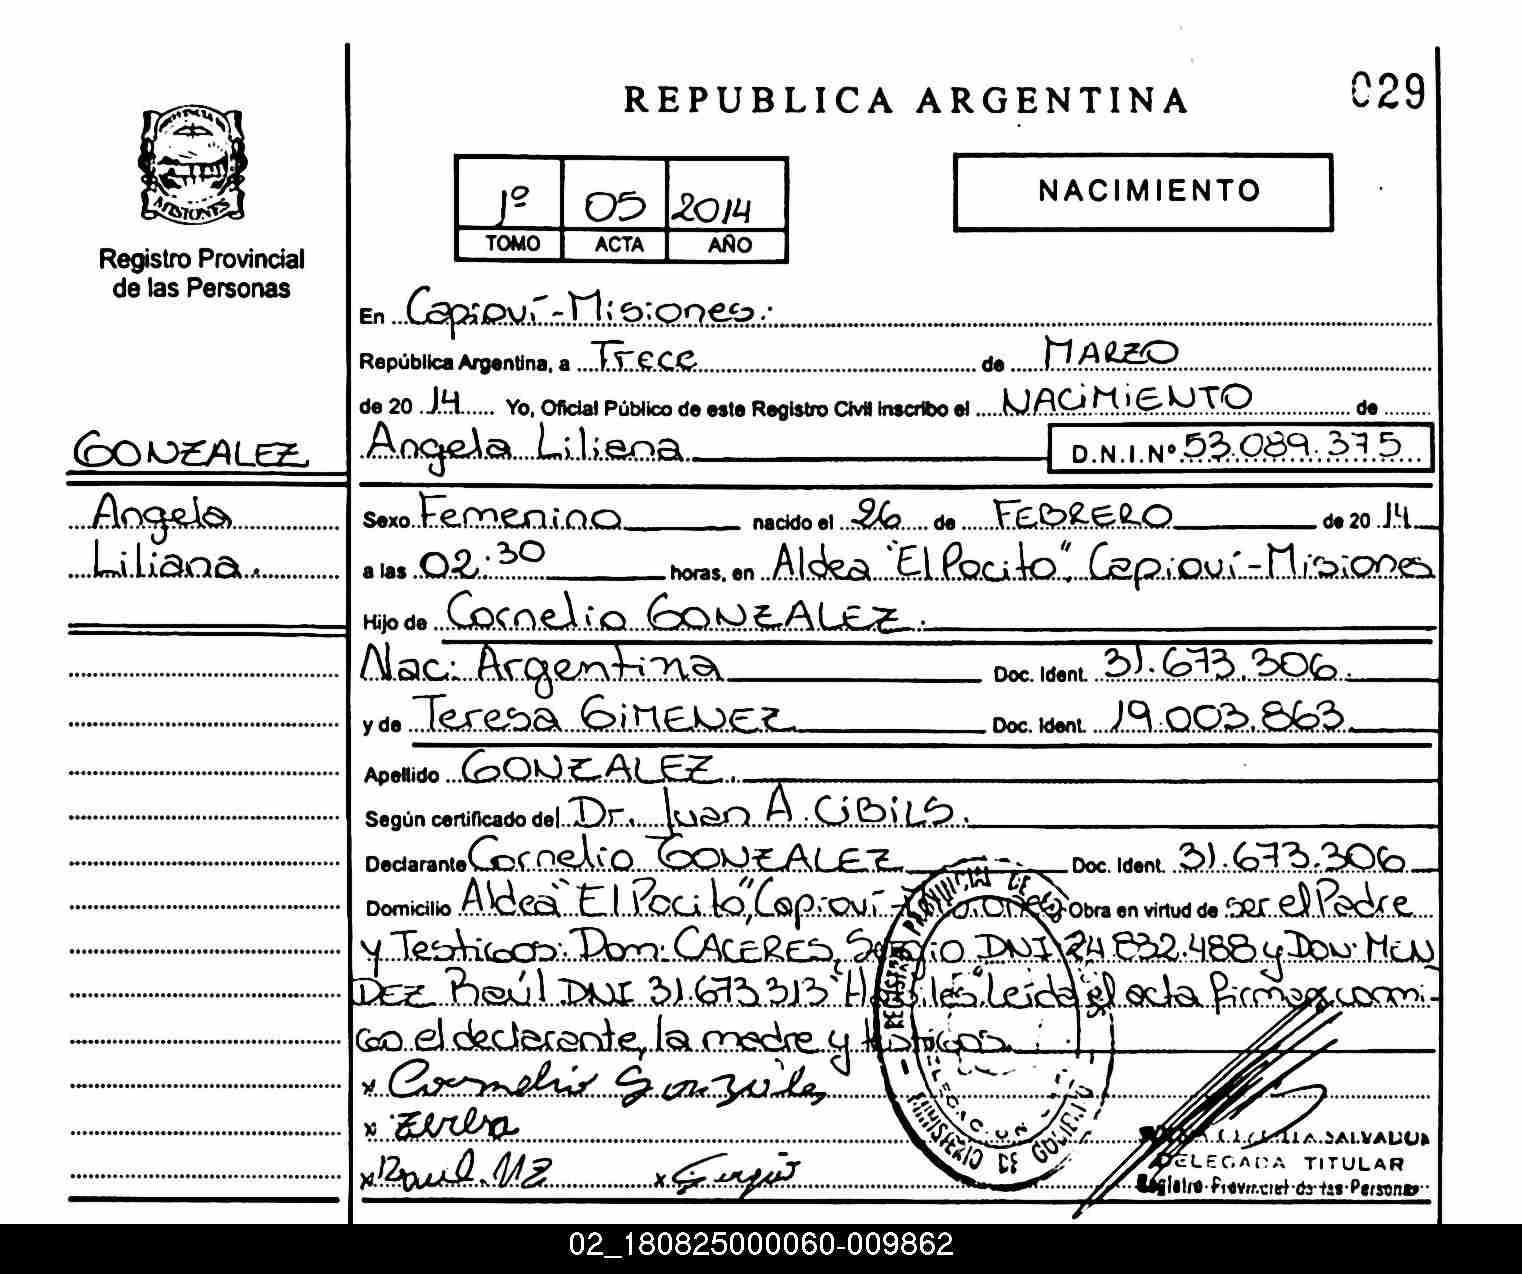 029
REPUBLICA ARGENTINA
NACIMIENTO
1º 05 2014
TOMO ACTA AÑO
MISIONES
Registro Provincial
de las Personas
GONZALEZ
Angela
Liliana.
En Capioví-Misiones.
República Argentina, a Trece de MARZO
de 20 14 Yo, Oficial Público de este Registro Civil inscribo el NACIMIENTO de
Angela Liliana D.N.I.Nº 53.089.375
Sexo Femenino nacido el 26 de FEBRERO de 20 14
a las 02:30 horas, en Aldea "El Pocito", Capioví-Misiones
Hijo de Cornelio GONZALEZ.
Nac: Argentina Doc. Ident. 31.673.306.
y de Teresa GIMENEZ Doc. Ident. 19.003.863
Apellido GONZALEZ.
Según certificado del Dr. Juan A. CIBILS.
Declarante Cornelio GONZALEZ Doc. Ident. 31.673.306
Domicilio Aldea "El Pocito", Capioví-Misiones Obra en virtud de ser el Padre
y Testigos: Don: CACERES, Sergio DNI 24.832.488 y DON: MEN
DEZ Raúl DNI 31.673.313 "Hábiles" Leída el acta firman conmi-
go el declarante, la madre y testigos.
x Cornelio Gonzalez
x
x Raul. MZ x Sergio
REGISTRO PROVINCIAL DE LAS
DELEGACION
MINISTERIO DE GOBIERNO
SALVADOR
DELEGADA TITULAR
Registro Provincial de las Personas
02_180825000060-009862